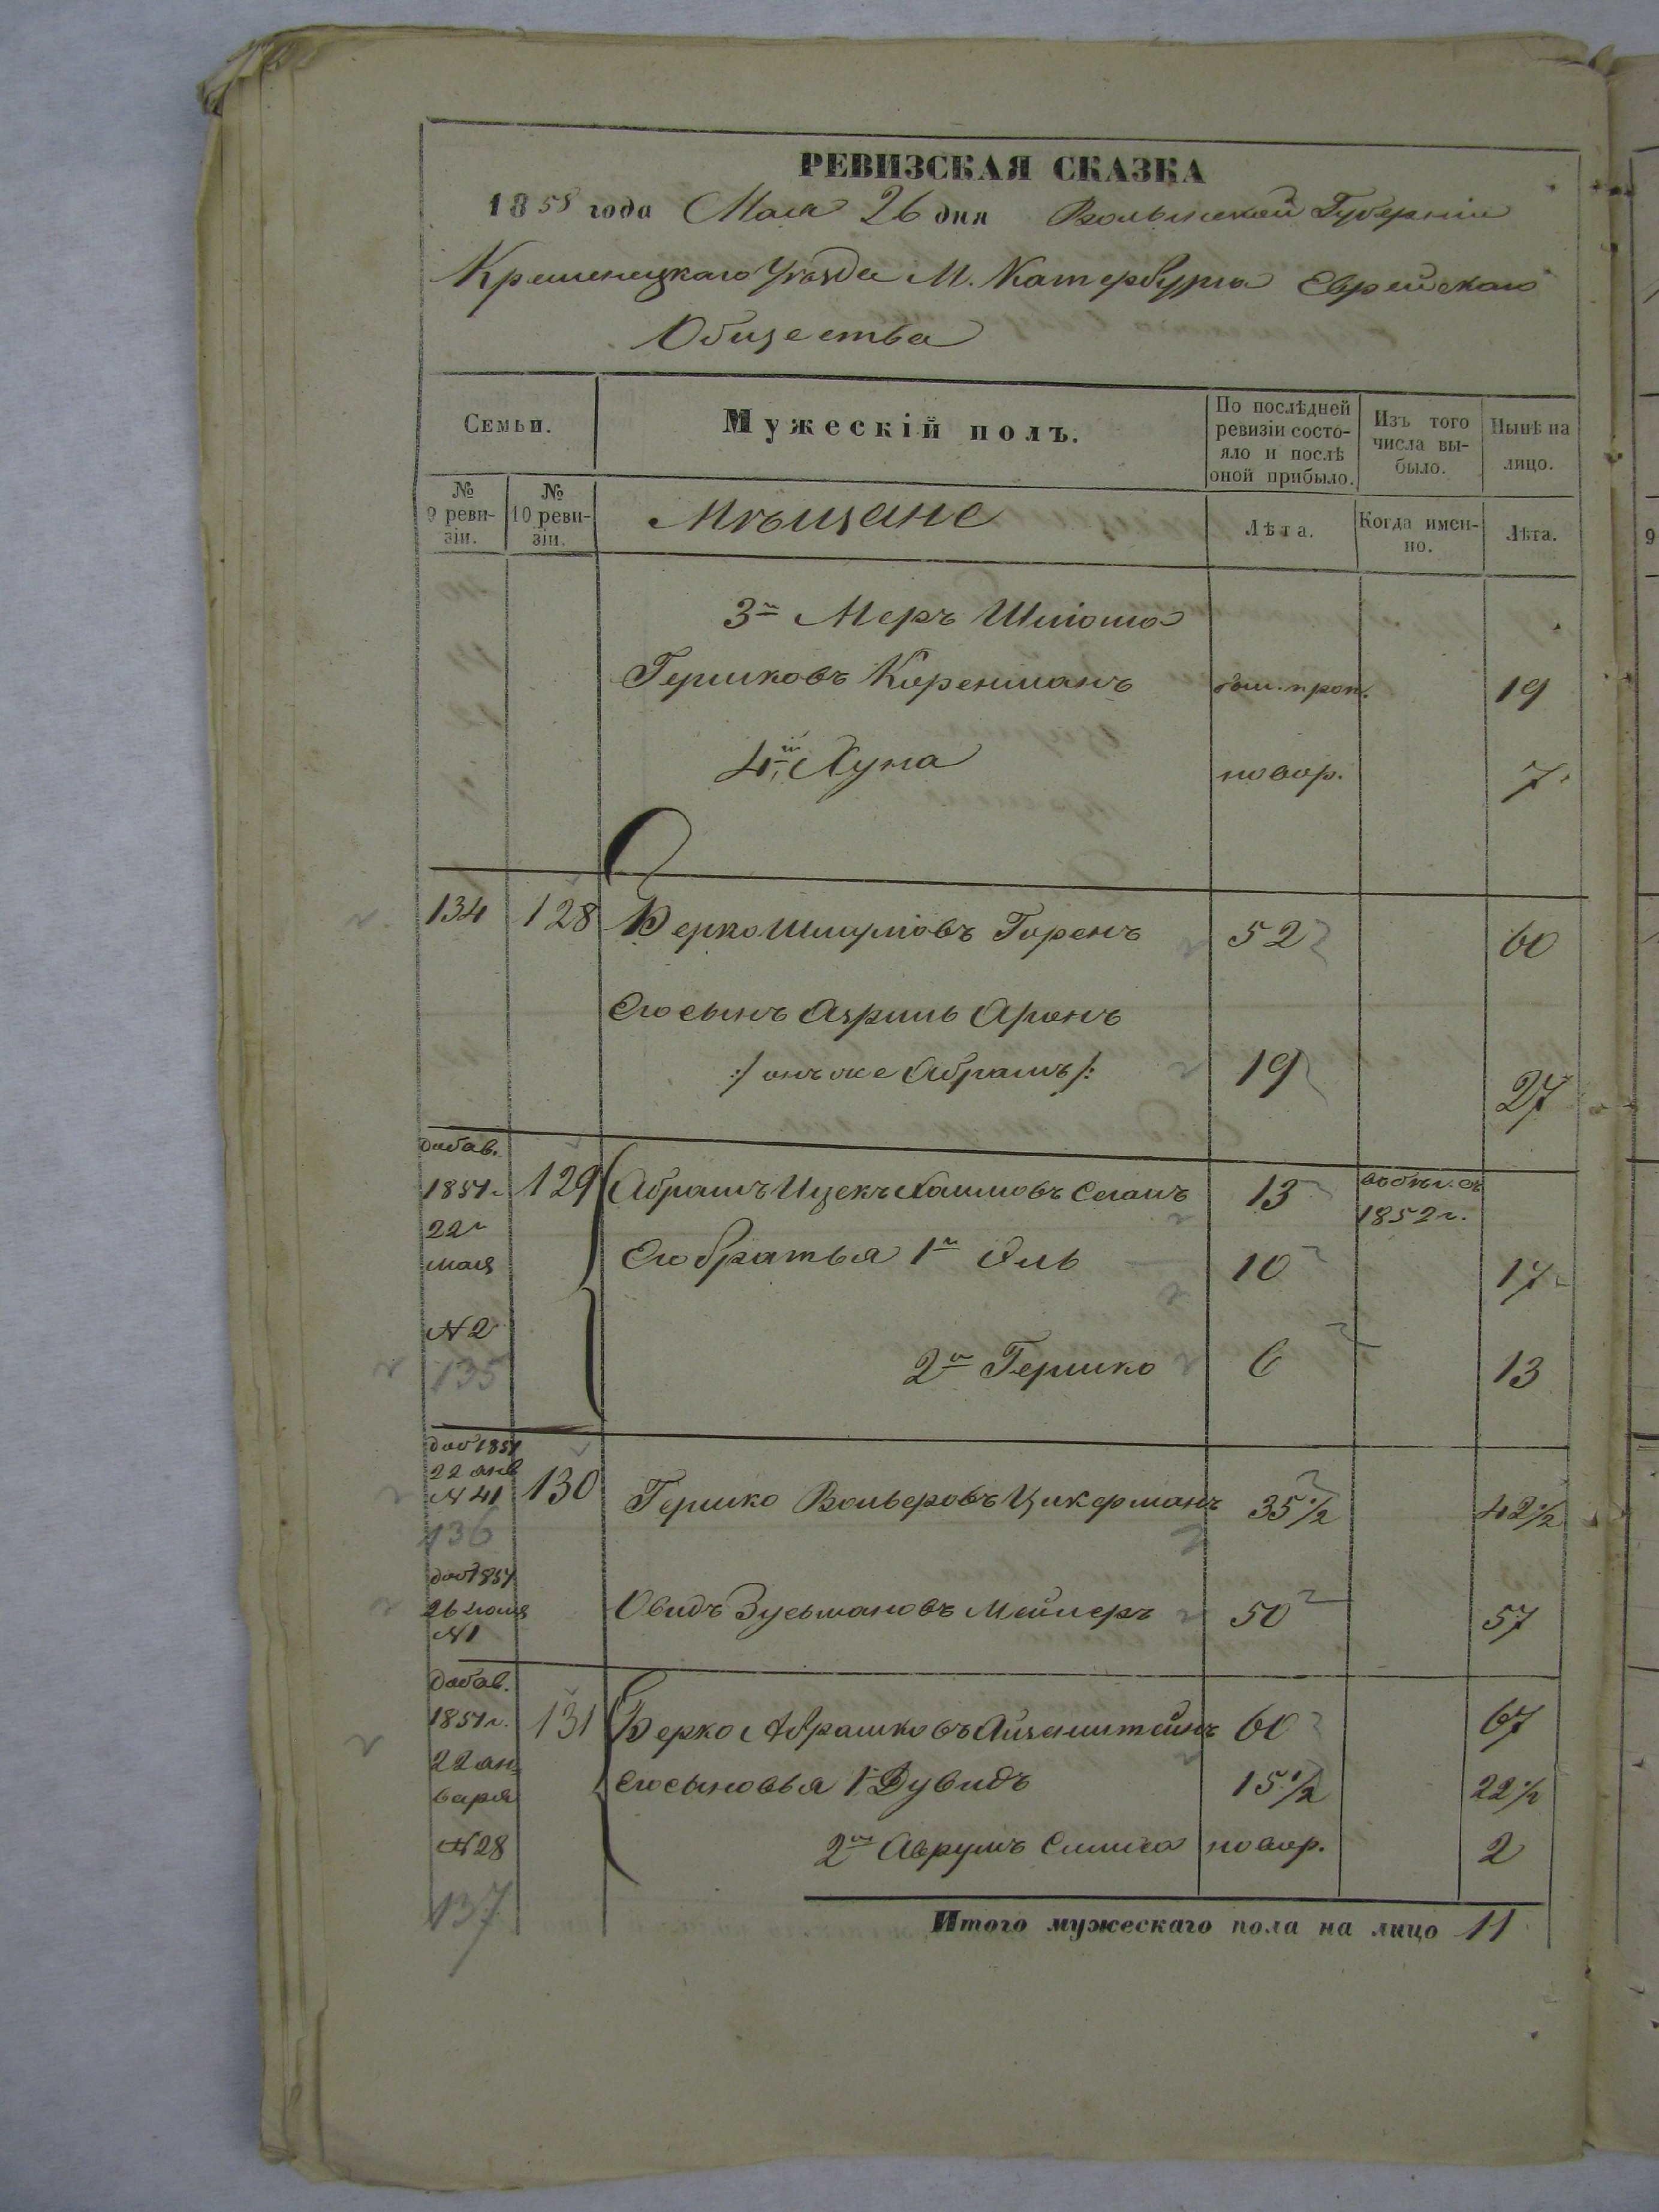 РЕВИЗСКАЯ СКАЗКА
1858 года Мая 26 дня Волынской Губерніи
Кременецкаго Уѣзда М. Катербурга Еврейскаго
Общества
Семьи. Мужескій полъ. По послѣдней ревизіи состояло и послѣ оной прибыло. Изъ того числа выбыло. Нынѣ на лицо.
№ 9 ревизіи. № 10 ревизіи. Мѣщане Лѣта. Когда именно. Лѣта.
3й Меръ Шлiома
Гершковъ Коренманъ был. проп. 19
4й Хуна новор. 7
134 128 Берко Шмулiовъ Горенъ 52 60
Его сынъ Азриль Аронъ
:/ онъ же Абрамъ /: 19 27
добав.
1851г. 129 Абрамъ Ицекъ Хаимовъ Сеганъ 13 1852 г.
22г
мая Его братья 1й Эль 10 17
№ 2
135 2й Гершко 6 13
доб 1851
22 янв
№ 41 130 Гершко Вольеровъ Цикерманъ 35 1/2 42 1/2
136
доб 1851
26 іюня Овидъ Зусьмановъ Мейлеръ 50 57
№ 1
добав.
1851г. 131 Берко Абрашковъ Айзенштейнъ 60 67
22 ян=
варя Его сыновья 1й Дувидъ 15 1/2 22 1/2
№ 28 2й Аврумъ Симха новор. 2
137
Итого мужескаго пола на лицо 11